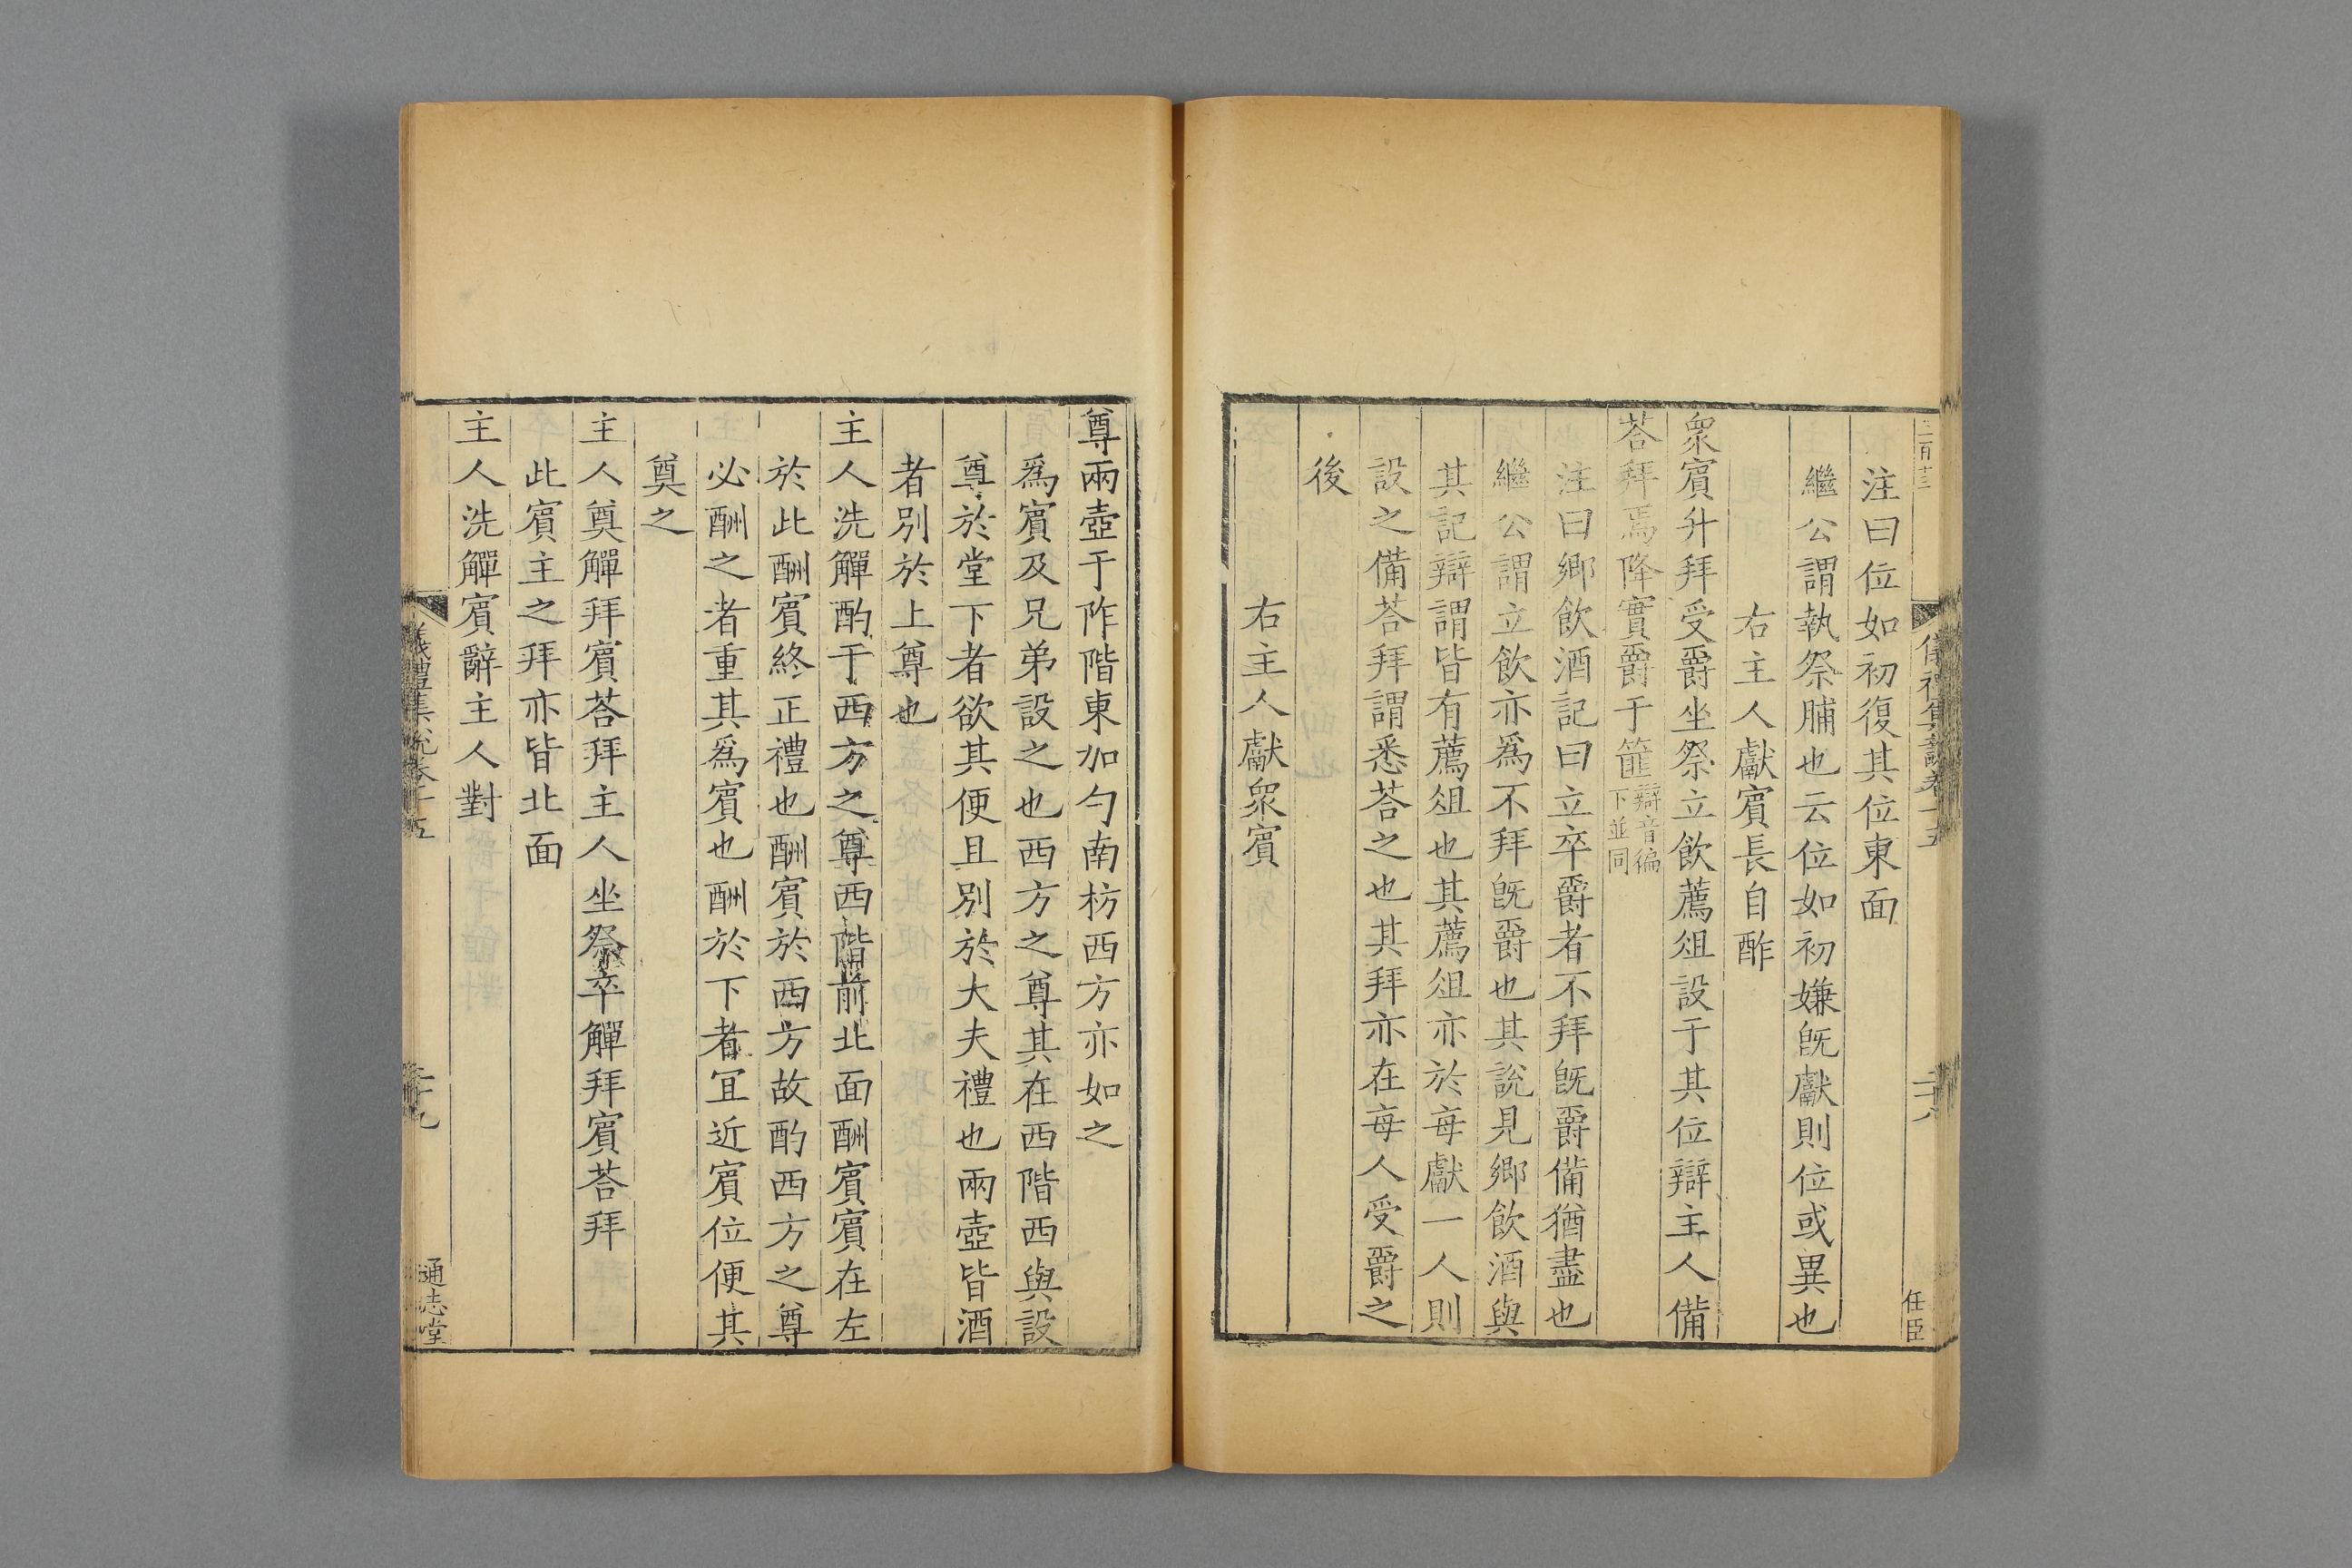 儀禮集說卷十五
二十八
任臣
注曰位如初復其位東面
繼公謂執祭脯也云位如初嫌旣獻則位或異也
右主人獻賓長自酢
衆賓升拜受爵坐祭立飲薦俎設于其位辯主人備
荅拜焉降實爵于篚辯音徧
下並同
注曰鄉飲酒記曰立卒爵者不拜旣爵備猶盡也
繼公謂立飲亦爲不拜旣爵也其說見鄉飲酒與
其記辯謂皆有薦俎也其薦俎亦於每獻一人則
設之備荅拜謂悉荅之也其拜亦在每人受爵之
後
右主人獻衆賓
尊兩壺于阼階東加勺南枋西方亦如之
爲賓及兄弟設之也西方之尊其在西階西與設
尊於堂下者欲其便且別於大夫禮也兩壺皆酒
者別於上尊也
主人洗觶酌于西方之尊西階前北面酬賓賓在左
於此酬賓終正禮也酬賓於西方故酌西方之尊
必酬之者重其爲賓也酬於下者宜近賓位便其
奠之
主人奠觶拜賓荅拜主人坐祭卒觶拜賓荅拜
此賓主之拜亦皆北面
主人洗觶賓辭主人對
儀禮集說卷十五
二十九
通志堂